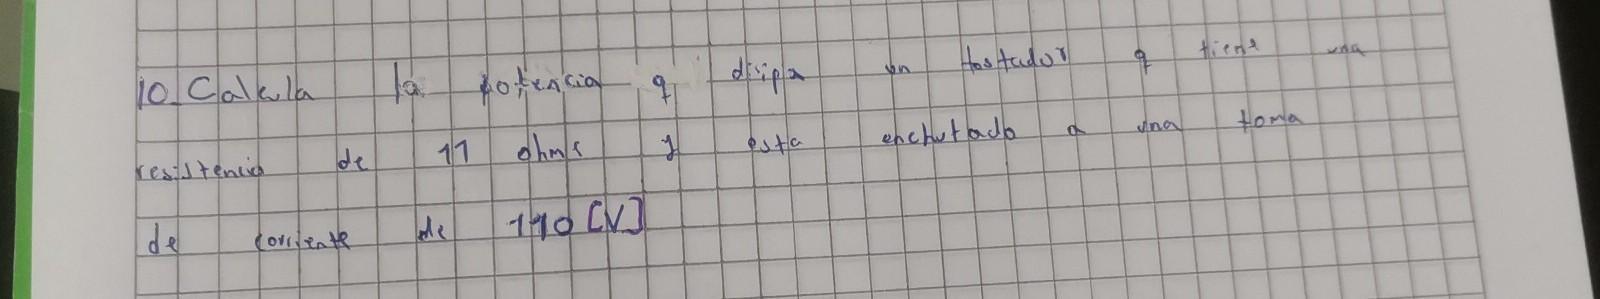 10. Calcula la potencia q disipa un tostador q tiene una
resistencia de 11 ohms y esta enchufado a una toma
de corriente de 110 [V]